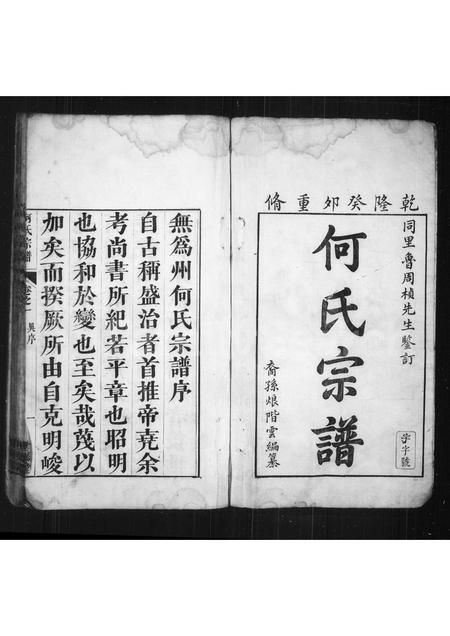 乾隆癸夘重脩
同里魯周楨先生鑒訂
何氏宗譜
裔孫烺階雲編纂
字號
無為州何氏宗譜序
自古稱盛治者首推帝堯余
考尚書所紀若平章也昭明
也協和於變也至矣哉蔑以
加矣而揆厥所由自克明峻
何氏宗譜
卷之一
序
一